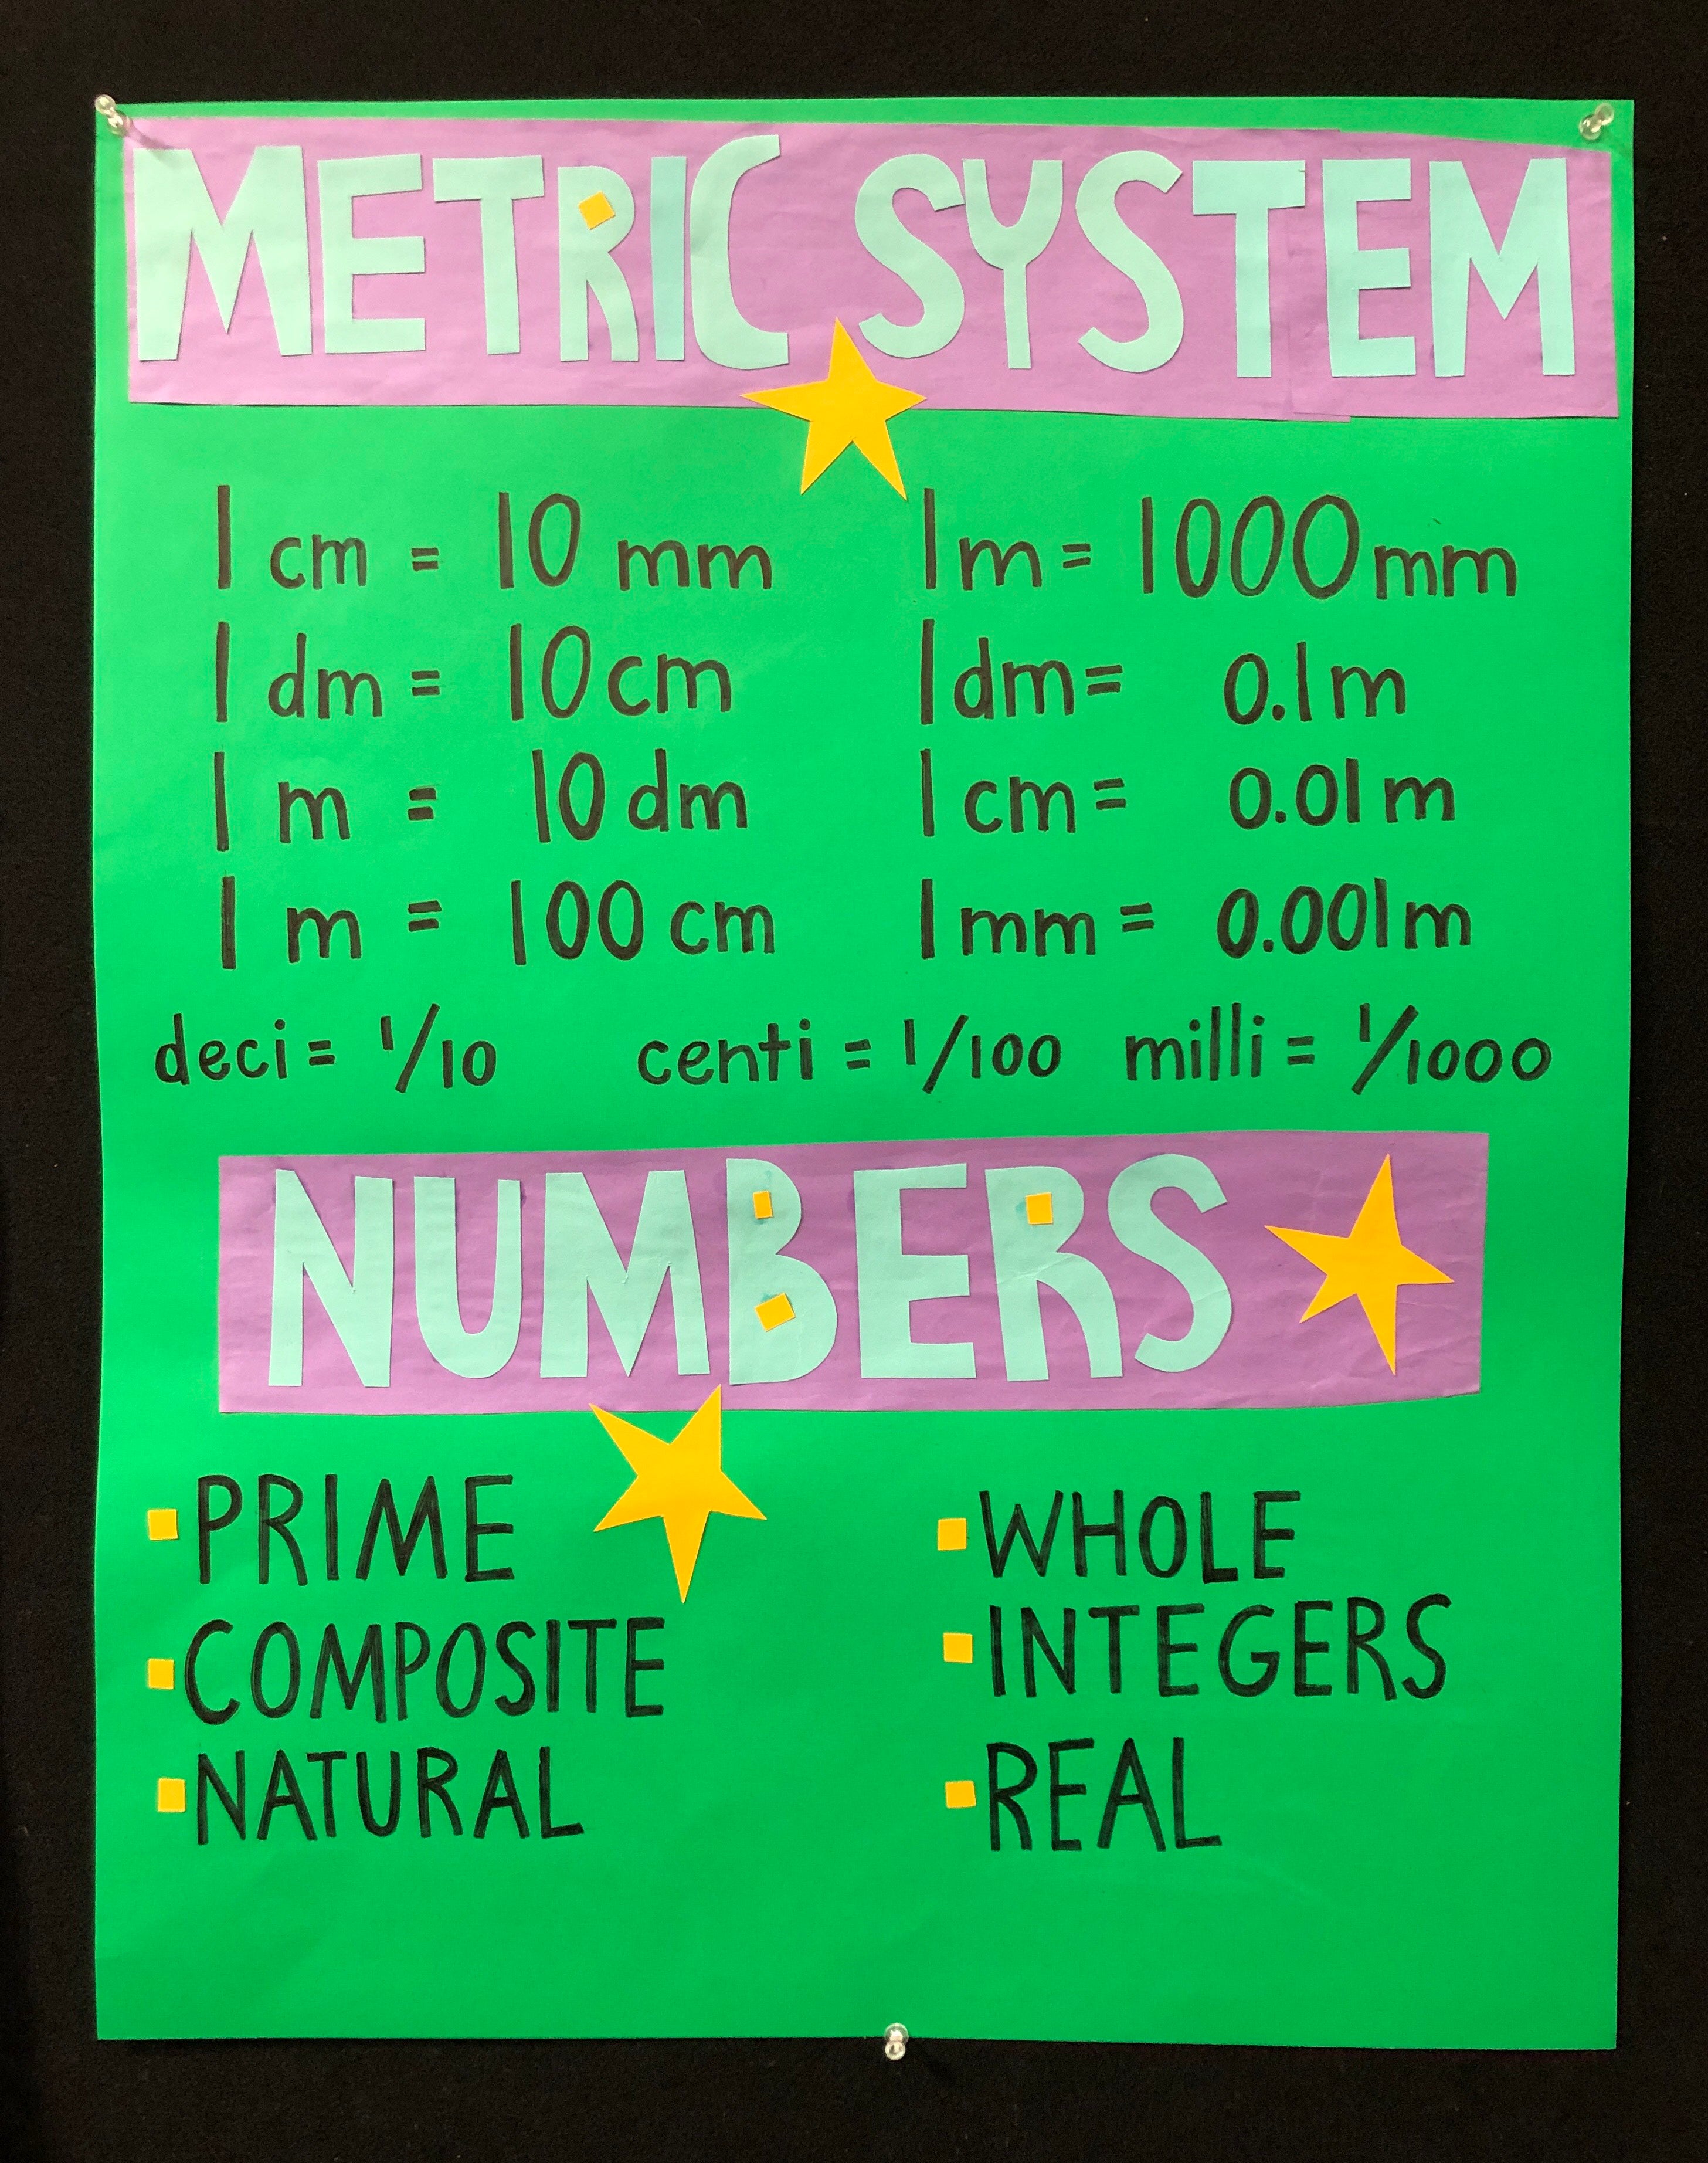 METRIC SYSTEM
1 cm = 10 mm
1 dm = 10 cm
1 m = 10 dm
1 m = 100 cm
1 m = 1000 mm
1 dm = 0.1 m
1 cm = 0.01 m
1 mm = 0.001 m
deci = 1/10 centi = 1/100 milli = 1/1000
NUMBERS
PRIME
COMPOSITE
NATURAL
WHOLE
INTEGERS
REAL